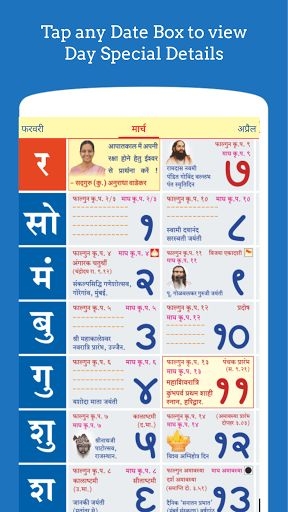 Tap any Date Box to view
Day Special Details
फरवरी
मार्च
अप्रैल
र
आपातकाल में अपनी
रक्षा होने हेतु ईश्वर
से प्रार्थना करें !
- सद्गुरु (कु.) अनुराधा वाडेकर
फाल्गुन कृ.प. ९
माघ कृ.प. ९
७
रामदास नवमी
पंडित गोविंद वल्लभ
पंत स्मृतिदिन
सो
फाल्गुन कृ.प. २/३ माघ कृ.प. २/३
१
फाल्गुन कृ.प. १० माघ कृ.प. १०
८
स्वामी दयानंद
सरस्वती जयंती
मं
फाल्गुन कृ.प. ४ माघ कृ.प. ४
अंगारक चतुर्थी
२
संकल्पसिद्धि गणेशोत्सव,
गोरेगांव, मुंबई.
फाल्गुन कृ.प. ११ विजया एकादशी
माघ कृ.प. ११
९
पू. गोळवलकर गुरुजी जयंती
बु
फाल्गुन कृ.प. ५ माघ कृ.प. ५
३
श्री महाकालेश्वर
नवरात्रि प्रारंभ, उज्जैन.
फाल्गुन कृ.प. १२ प्रदोष
माघ कृ.प. १२
१०
गु
फाल्गुन कृ.प. ६ माघ कृ.प. ६
४
यशोदा माता जयंती
फाल्गुन कृ.प. १३ पंचक प्रारंभ
माघ कृ.प. १३ (स. ९.२१)
महाशिवरात्रि
११
कुंभपर्व प्रथम शाही
स्नान, हरिद्वार.
शु
फाल्गुन कृ.प. ७ कालाष्टमी
माघ कृ.प. ७ (उ.भा.)
५
श्रीनाथजी
पाटोत्सव,
राजस्थान.
फाल्गुन कृ.प. १४
माघ कृ.प. १४
१२
विश्व अग्निहोत्र दिन
श
फाल्गुन कृ.प. ८ माघ कृ.प. ८
कालाष्टमी सीताष्टमी
(द.भा.)
६
जानकी जयंती
फाल्गुन अमावस्या माघ अमावस्या
दर्श अमावस्या
१३
दैनिक 'सनातन प्रभात'